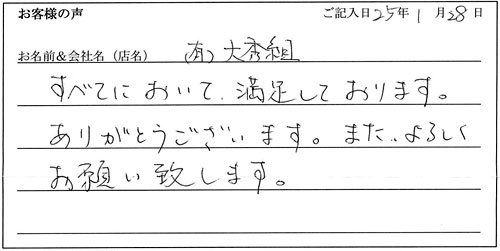 お客様の声 ご記入日25年1月28日
お名前&会社名（店名） (有)大秀組
すべてにおいて、満足しております。
ありがとうございます。また、よろしく
お願い致します。